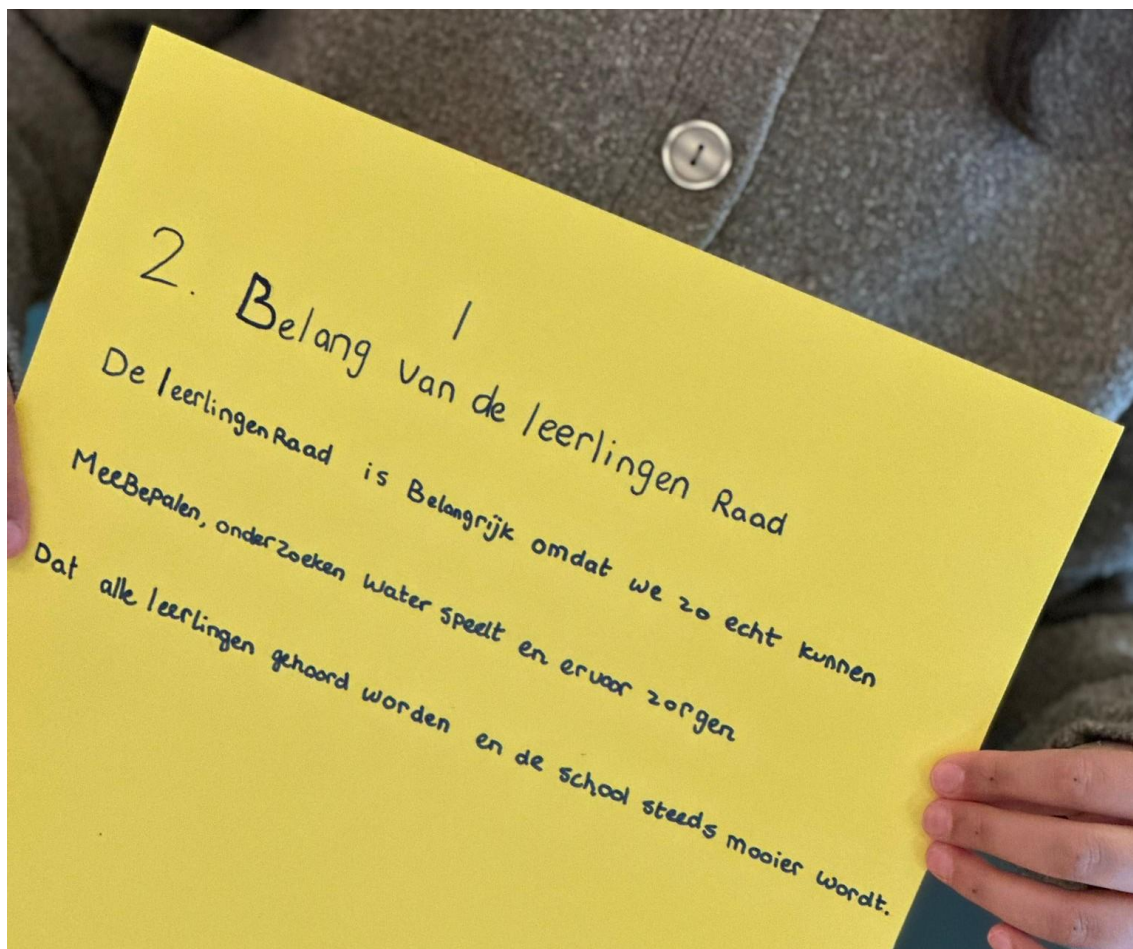 2. Belang van de leerlingen Raad
De leerlingenRaad is Belangrijk omdat we zo echt kunnen
MeeBepalen, onderzoeken water speelt en ervoor zorgen
Dat alle leerlingen gehoord worden en de school steeds mooier wordt.